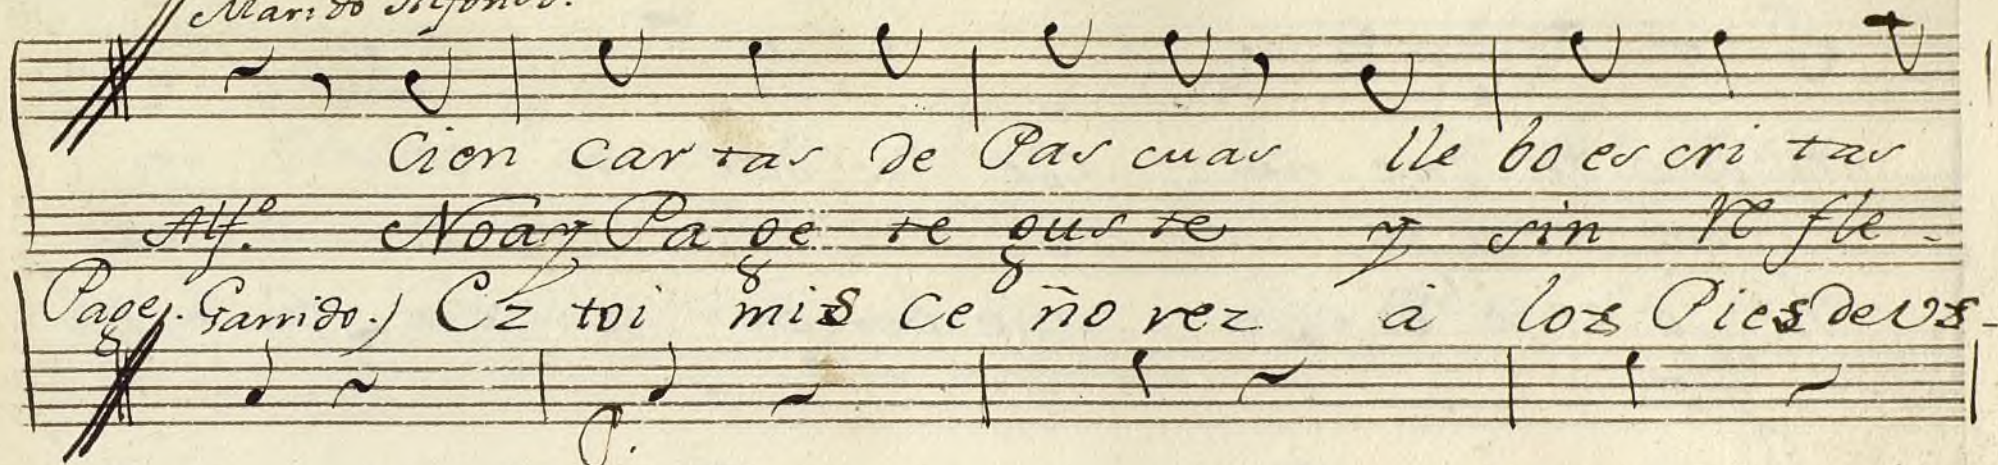 Marido Alfonso.
Cien car tas de Pas cuas lle bo es cri tas
Alf.º No ay Pa ge te gus te y sin Re fle -
Page. Garrido.) Ez toi mis ce ño rez à los Pies de Us -
P.